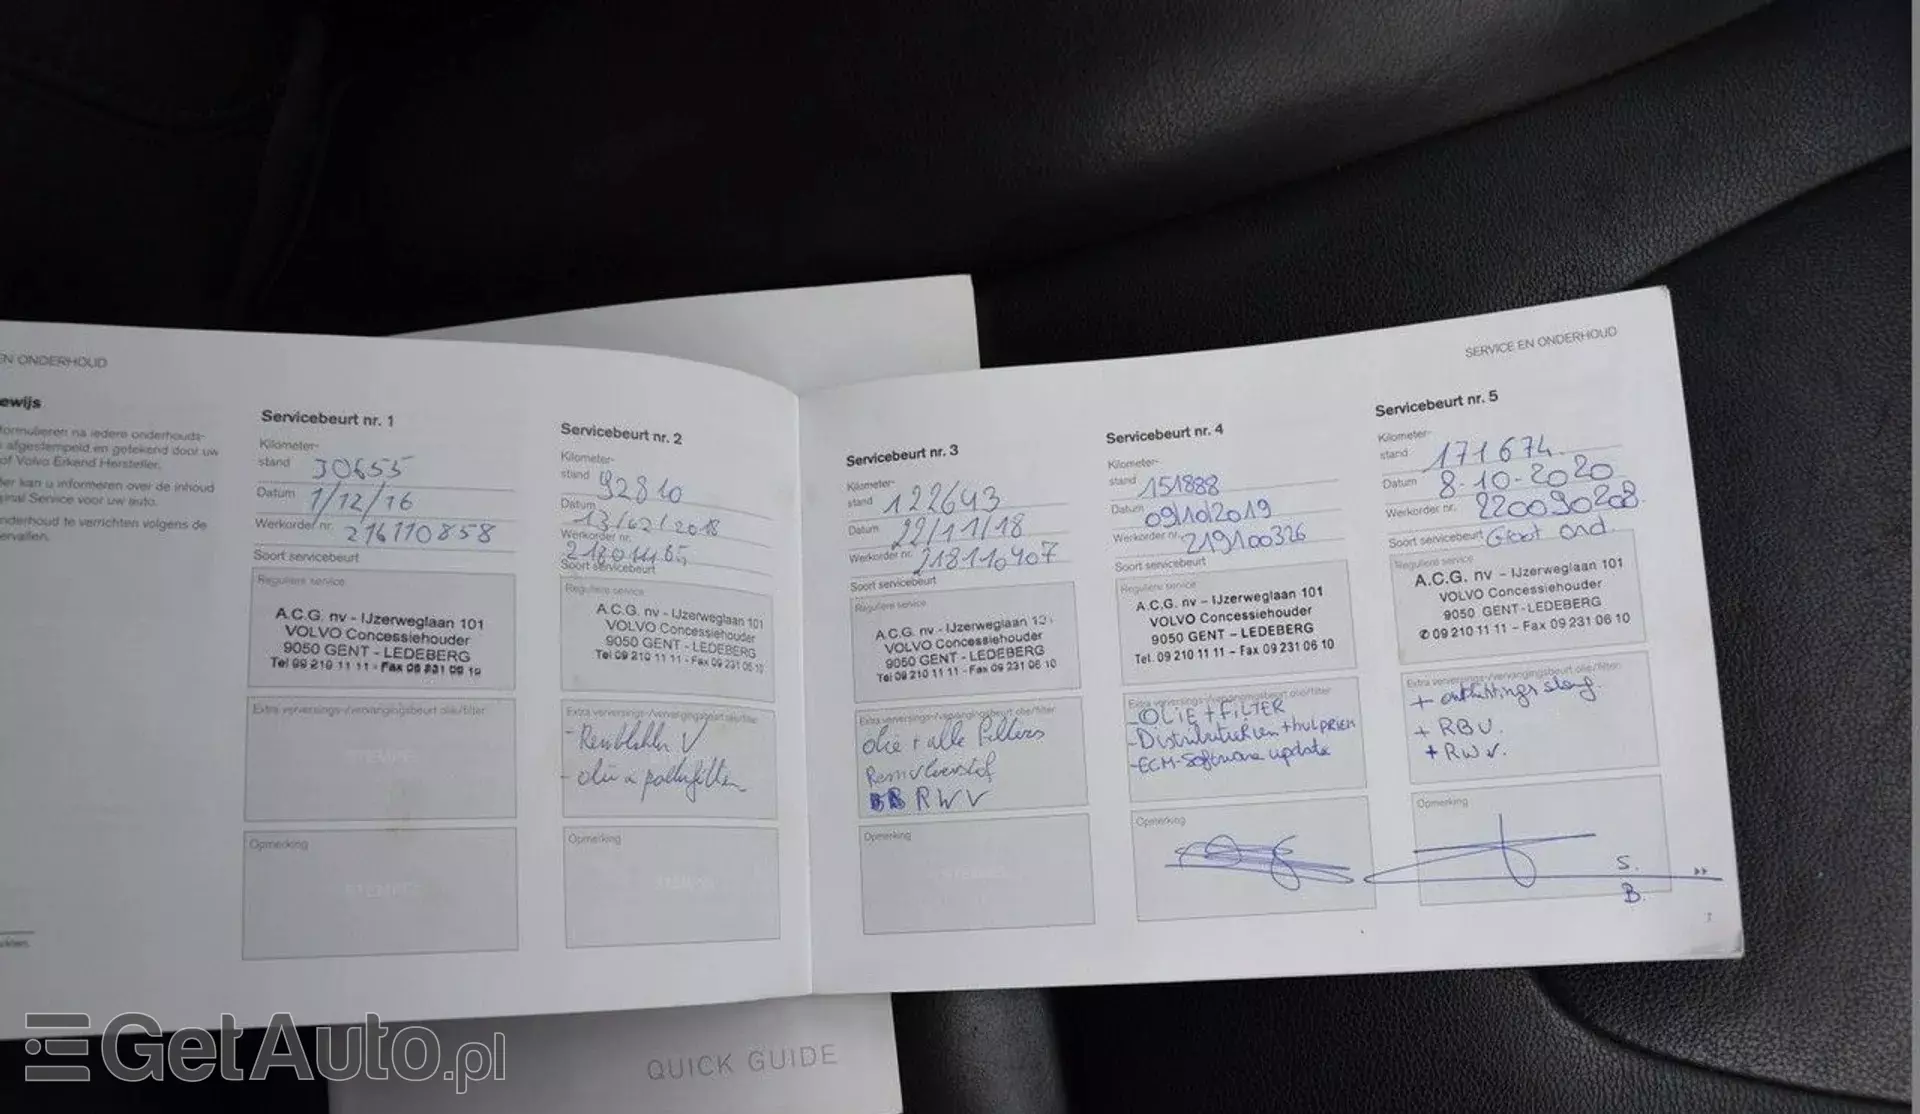 EN ONDERHOUD
ewijs
formulieren na iedere onderhouds-
afgestempeld en getekend door uw
of Volvo Erkend Hersteller.
ler kan u informeren over de inhoud
ginal Service voor uw auto.
nderhoud te verrichten volgens de
ervallen.
Servicebeurt nr. 1
Kilometer-
stand 30655
Datum 1/12/16
Werkorder nr. 216110858
Soort servicebeurt
Reguliere service
A.C.G. nv - IJzerweglaan 101
VOLVO Concessiehouder
9050 GENT - LEDEBERG
Tel 09 210 11 11 - Fax 09 231 06 10
Extra verversings-/vervangingsbeurt olie/filter
STEMPEL
Opmerking
STEMPEL
Servicebeurt nr. 2
Kilometer-
stand 92810
Datum
13/02/2018
Werkorder nr.
Soort servicebeurt
Reguliere service
A.C.G. nv - IJzerweglaan 101
VOLVO Concessiehouder
9050 GENT - LEDEBERG
Tel 09 210 11 11 - Fax 09 231 06 10
Extra verversings-/vervangingsbeurt olie/filter
Opmerking
Servicebeurt nr. 3
Kilometer-
stand 122643
Datum 22/11/18
Werkorder nr. 218110407
Soort servicebeurt
Reguliere service
A.C.G. nv - IJzerweglaan
VOLVO Concessiehouder
9050 GENT - LEDEBERG
Tel 09 210 11 11 - Fax 09 231 06 10
Extra verversings-/vervangingsbeurt olie/filter
olie + alle filters
Remvloeistof
RWV
Opmerking
SERVICE EN ONDERHOUD
Servicebeurt nr. 4
Kilometer-
stand 151888
Datum 09/10/2019
Werkorder nr. 219100326
Soort servicebeurt
Reguliere service
A.C.G. nv - IJzerweglaan 101
VOLVO Concessiehouder
9050 GENT - LEDEBERG
Tel. 09 210 11 11 - Fax 09 231 06 10
Extra verversings-/vervangingsbeurt olie/filter
-OLIE + FILTER
-Distributieriem + hulpriem
-ECM-Software update
Opmerking
Servicebeurt nr. 5
Kilometer-
stand 171674
Datum 8-10-2020
Werkorder nr. 220090208
Soort servicebeurt Groot ond.
Reguliere service
A.C.G. nv - IJzerweglaan 101
VOLVO Concessiehouder
9050 GENT - LEDEBERG
✆ 09 210 11 11 - Fax 09 231 06 10
Extra verversings-/vervangingsbeurt olie/filter
+ ontluchtings slang
+ RBV.
+ RWV.
Opmerking
S.
B.
7
QUICK GUIDE
GetAuto.pl